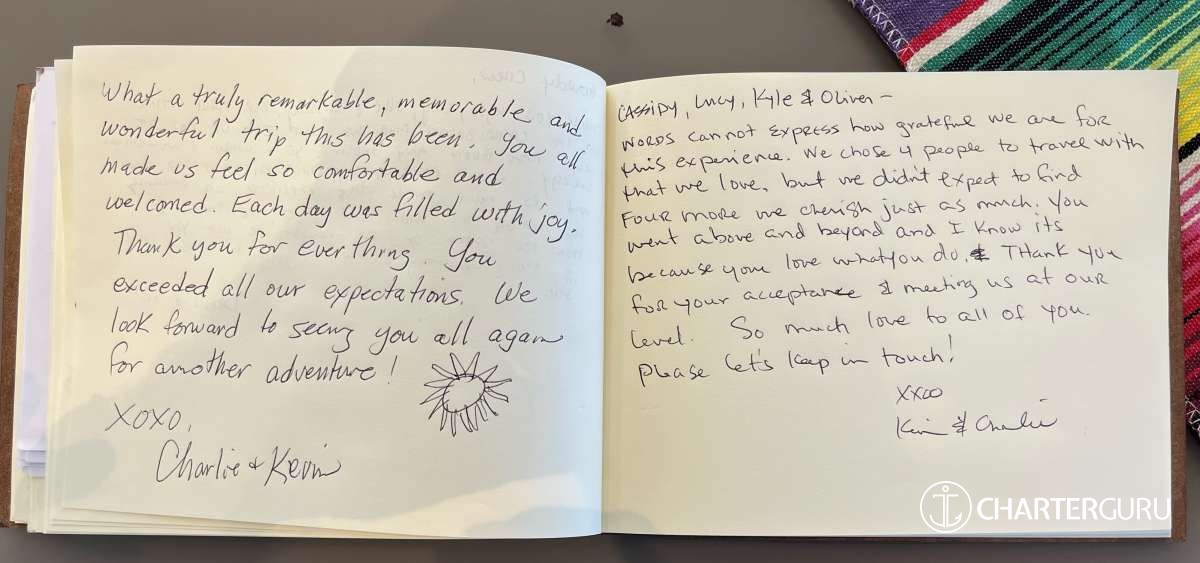 What a truly remarkable, memorable and
wonderful trip this has been. You all
made us feel so comfortable and
welcomed. Each day was filled with joy.
Thank you for everthing. You
exceeded all our expectations. We
look forward to seeing you all again
for another adventure!
XOXO,
Charlie + Kevin
CASSIDY, Lucy, Kyle & Oliver -
WORDS CANNOT EXPRESS how grateful we are for
this experience. We chose 4 people to travel with
that we love, but we didn't expect to find
FOUR more we cherish just as much. You
went above and beyond and I know its
because your love what you do. & THank you
for your acceptance & meeting us at our
level. So much love to all of you.
Please let's keep in touch!
XXOO
Kevin & Charlie
CHARTERGURU